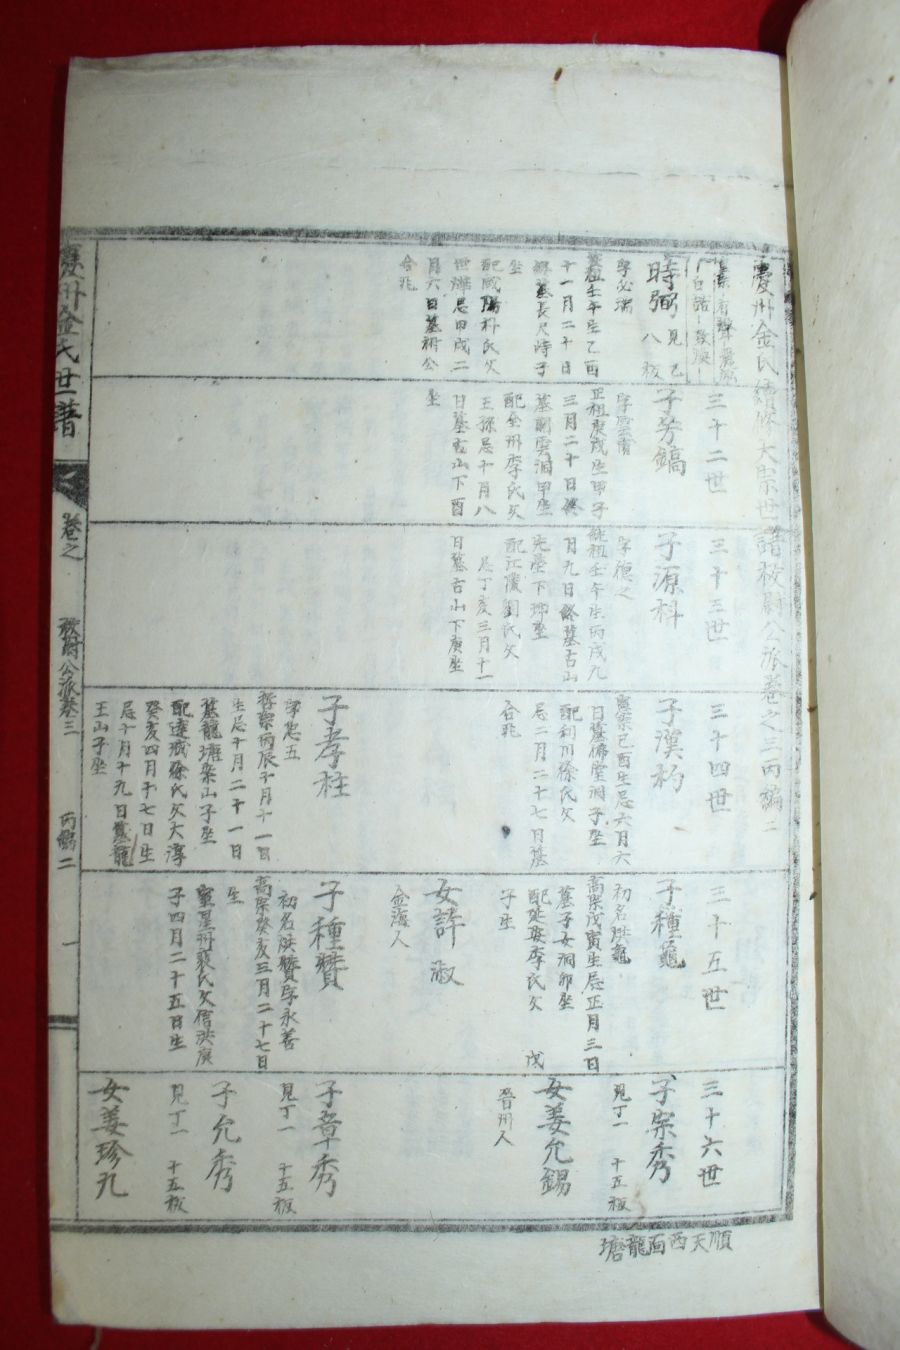 慶州金氏續修大宗世譜校尉公派卷之三丙編 二
時弼 見乙
八板
字必瑞
英祖壬午生乙酉
十一月二十日
終墓長尺峙子
坐
配咸陽朴氏父
世燁忌甲戌二
月六日墓祔公
合兆
三十二世
子
鎬
正祖庚戌生甲子
三月二十日終
墓開雲洞甲坐
配全州李氏父
王孫忌十月八
日墓古山下酉
坐
三十三世
子源科
字德之
純祖壬午生丙戌九
月九日終墓古山
先塋下卯坐
配江陵劉氏父
忌丁亥三月十一
日墓古山下庚坐
三十四世
子漢杓
憲宗己酉生忌六月六
日墓佛堂洞子坐
配利川徐氏父
忌二月二十七日墓
合兆
子孝柱
字忠五
哲宗丙辰十月十一日
生忌十月二十一日
墓龍塘案山子坐
配達城徐氏父大淳
癸亥四月十七日生
忌十月十九日墓龍
王山子坐
三十五世
子種龜
初名洪龜
高宗戊寅生忌正月三日
墓子女洞卯坐
配延安李氏父 戊
子生
女許淑
金海人
子種贊
初名洪贊字永善
高宗癸亥三月二十七日
生
配星州裵氏父信洪庚
子四月二十五日生
三十六世
子宗秀
見丁一 十五板
女姜允錫
晉州人
子章秀
見丁一 十五板
子允秀
見丁一 十五板
女姜珍九
慶州金氏世譜
卷之
校尉公派卷三
丙編二
一
順天西面龍塘